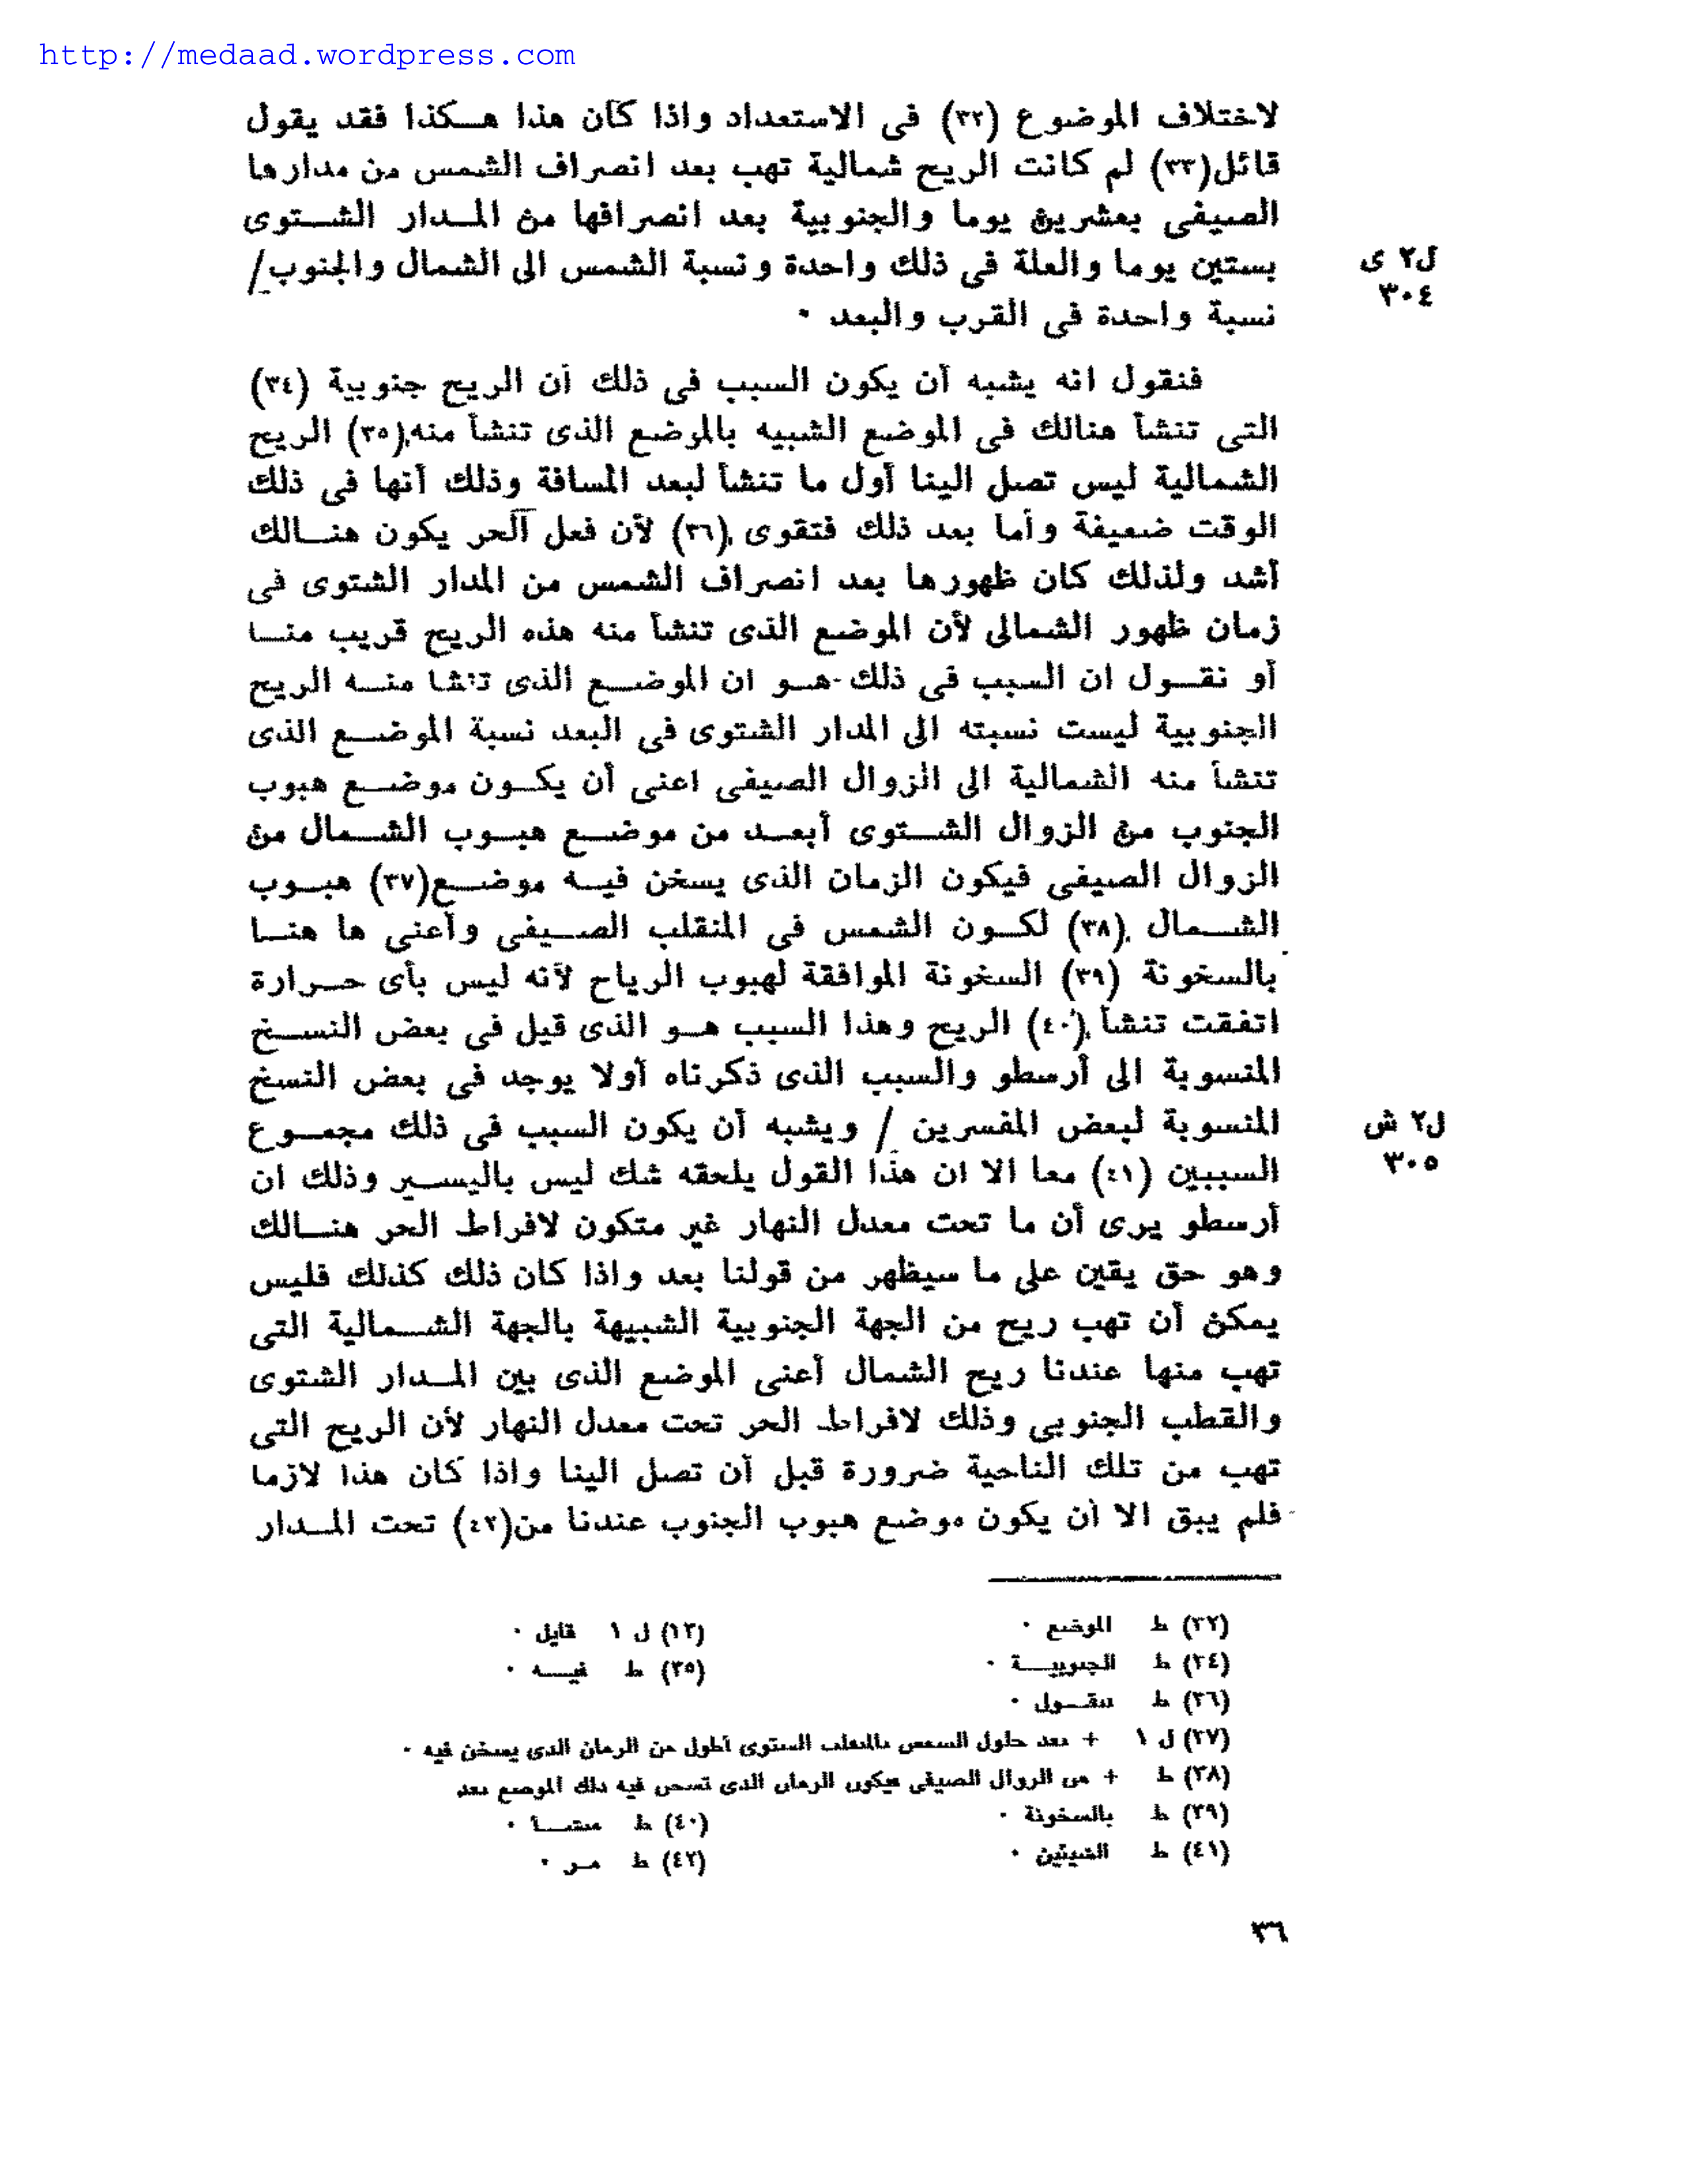 http://medaad.wordpress.com
لاختلاف الموضوع (٣٢) فى الاستعداد واذا كان هذا هكذا فقد يقول
قائل(٣٣) لم كانت الريح شمالية تهب بعد انصراف الشمس من مدارها
الصيفى بعشرين يوما والجنوبية بعد انصرافها من المدار الشتوى
بستين يوما والعلة فى ذلك واحدة ونسبة الشمس الى الشمال والجنوب/
ل٢ ى
٣٠٤
نسبة واحدة فى القرب والبعد ٠
فنقول انه يشبه أن يكون السبب فى ذلك أن الريح جنوبية (٣٤)
التى تنشأ هنالك فى الموضع الشبيه بالموضع الذى تنشأ منه(٣٥) الريح
الشمالية ليس تصل الينا أول ما تنشأ لبعد المسافة وذلك أنها فى ذلك
الوقت ضعيفة وأما بعد ذلك فتقوى (٣٦) لأن فعل الحر يكون هنالك
أشد ولذلك كان ظهورها بعد انصراف الشمس من المدار الشتوى فى
زمان ظهور الشمالى لأن الموضع الذى تنشأ منه هذه الريح قريب منا
أو نقول ان السبب فى ذلك هو ان الموضع الذى تنشا منه الريح
الجنوبية ليست نسبته الى المدار الشتوى فى البعد نسبة الموضع الذى
تنشأ منه الشمالية الى الزوال الصيفى اعنى أن يكون موضع هبوب
الجنوب من الزوال الشتوى أبعد من موضع هبوب الشمال من
الزوال الصيفى فيكون الزمان الذى يسخن فيه موضع(٣٧) هبوب
الشمال (٣٨) لكون الشمس فى المنقلب الصيفى وأعنى ها هنا
بالسخونة (٣٩) السخونة الموافقة لهبوب الرياح لأنه ليس بأى حرارة
اتفقت تنشأ (٤٠) الريح وهذا السبب هو الذى قيل فى بعض النسخ
المنسوبة الى أرسطو والسبب الذى ذكرناه أولا يوجد فى بعض النسخ
المنسوبة لبعض المفسرين / ويشبه أن يكون السبب فى ذلك مجموع
ل٢ ش
٣٠٥
السببين (٤١) معا الا ان هذا القول يلحقه شك ليس باليسير وذلك ان
أرسطو يرى أن ما تحت معدل النهار غير متكون لافراط الحر هنالك
وهو حق يقين على ما سيظهر من قولنا بعد واذا كان ذلك كذلك فليس
يمكن أن تهب ريح من الجهة الجنوبية الشبيهة بالجهة الشمالية التى
تهب منها عندنا ريح الشمال أعنى الموضع الذى بين المدار الشتوى
والقطب الجنوبى وذلك لافراط الحر تحت معدل النهار لأن الريح التى
تهب من تلك الناحية ضرورة قبل أن تصل الينا واذا كان هذا لازما
فلم يبق الا أن يكون موضع هبوب الجنوب عندنا من(٤٢) تحت المدار
(٣٢) ط الموضع ٠
(١٣) ل ١ قايل ٠
(٣٤) ط الجنوبية ٠
(٣٥) ط فيه ٠
(٣٦) ط
(٣٧) ل ١ + بعد حلول الشمس بالمنقلب الشتوى أطول من الزمان الذى يسخن فيه ٠
(٣٨) ط + من الزوال الصيفى فيكون الزمان الذى تسخن فيه ذلك الموضع بعد
(٣٩) ط بالسخونة ٠
(٤٠) ط
(٤١) ط الشيئين ٠
(٤٢) ط مر ٠
٣٦